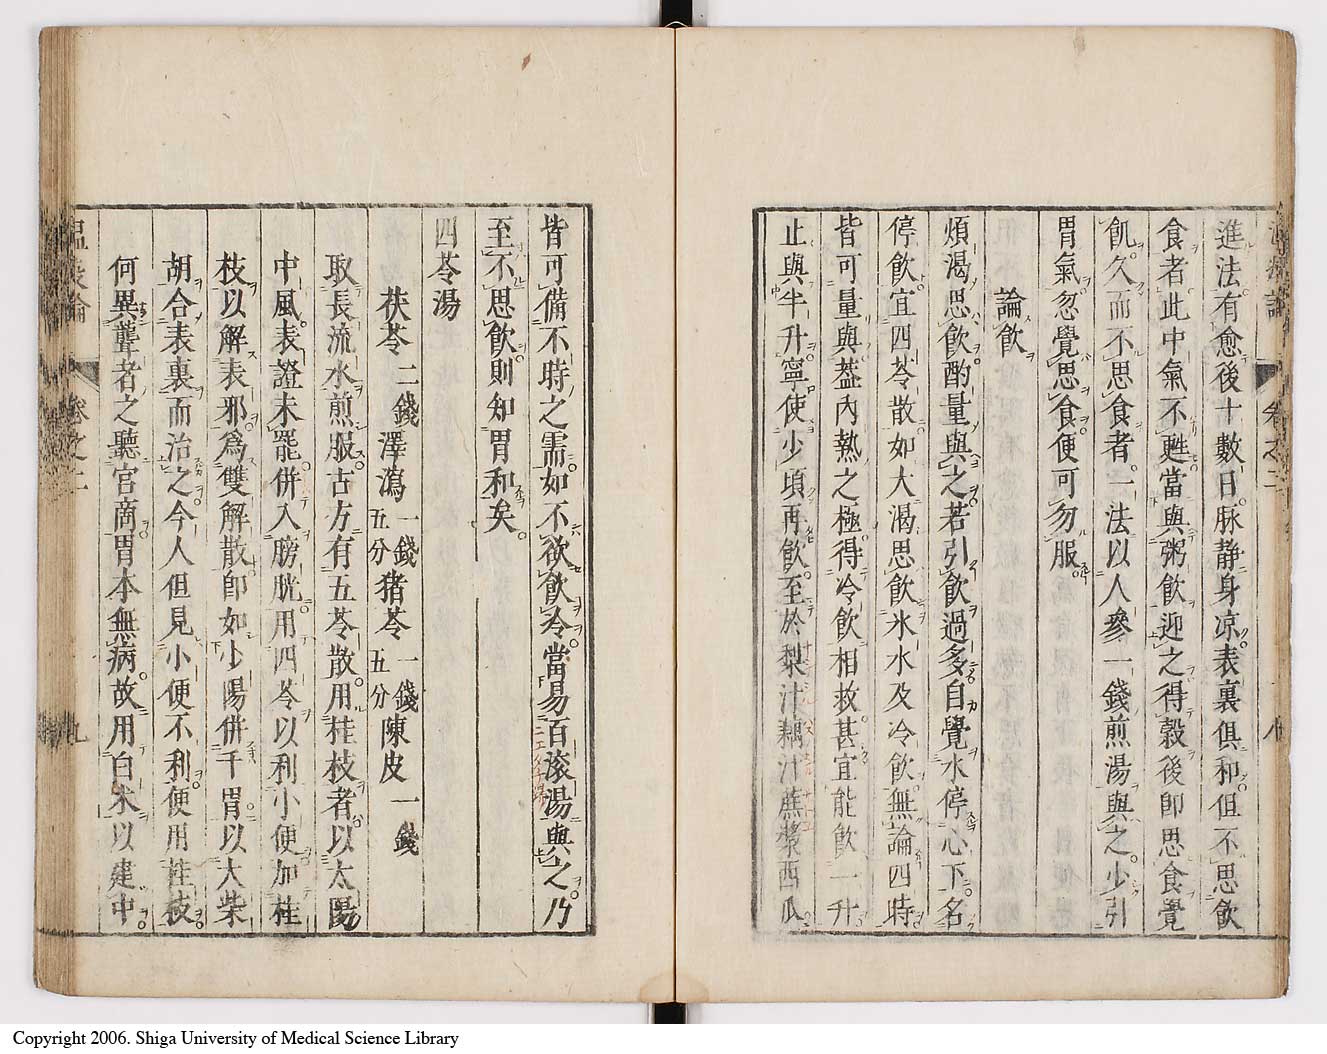 進法有愈後十數日脉静身凉表裏俱和但不思飲
食者此中氣不甦當與粥飲迎之得穀後即思食覺
飢久而不思食者一法以人參一錢煎湯與之少引
胃氣忽覺思食便可勿服
論飲
煩渴思飲酌量與之若引飲過多自覺水停心下名
停飲宜四苓散如大渴思飲氷水及冷飲無論四時
皆可量與葢內熱之極得冷飲相救甚宜能飲一升
止與半升寧使少頃再飲至於梨汁藕汁蔗漿西瓜
皆可備不時之需如不欲飲冷當易百滚湯與之乃
至不思飲則知胃和矣
四苓湯
茯苓二錢澤瀉一錢五分猪苓一錢五分陳皮一錢
取長流水煎服古方有五苓散用桂枝者以太陽
中風表證未罷併入膀胱用四苓以利小便加桂
枝以解表邪為雙解散即如少陽併于胃以大柴
胡合表裏而治之今人但見小便不利便用桂枝
何異聾者之聽宫商胃本無病故用白朮以建中
溫疫論 卷之二 九
Copyright 2006. Shiga University of Medical Science Library